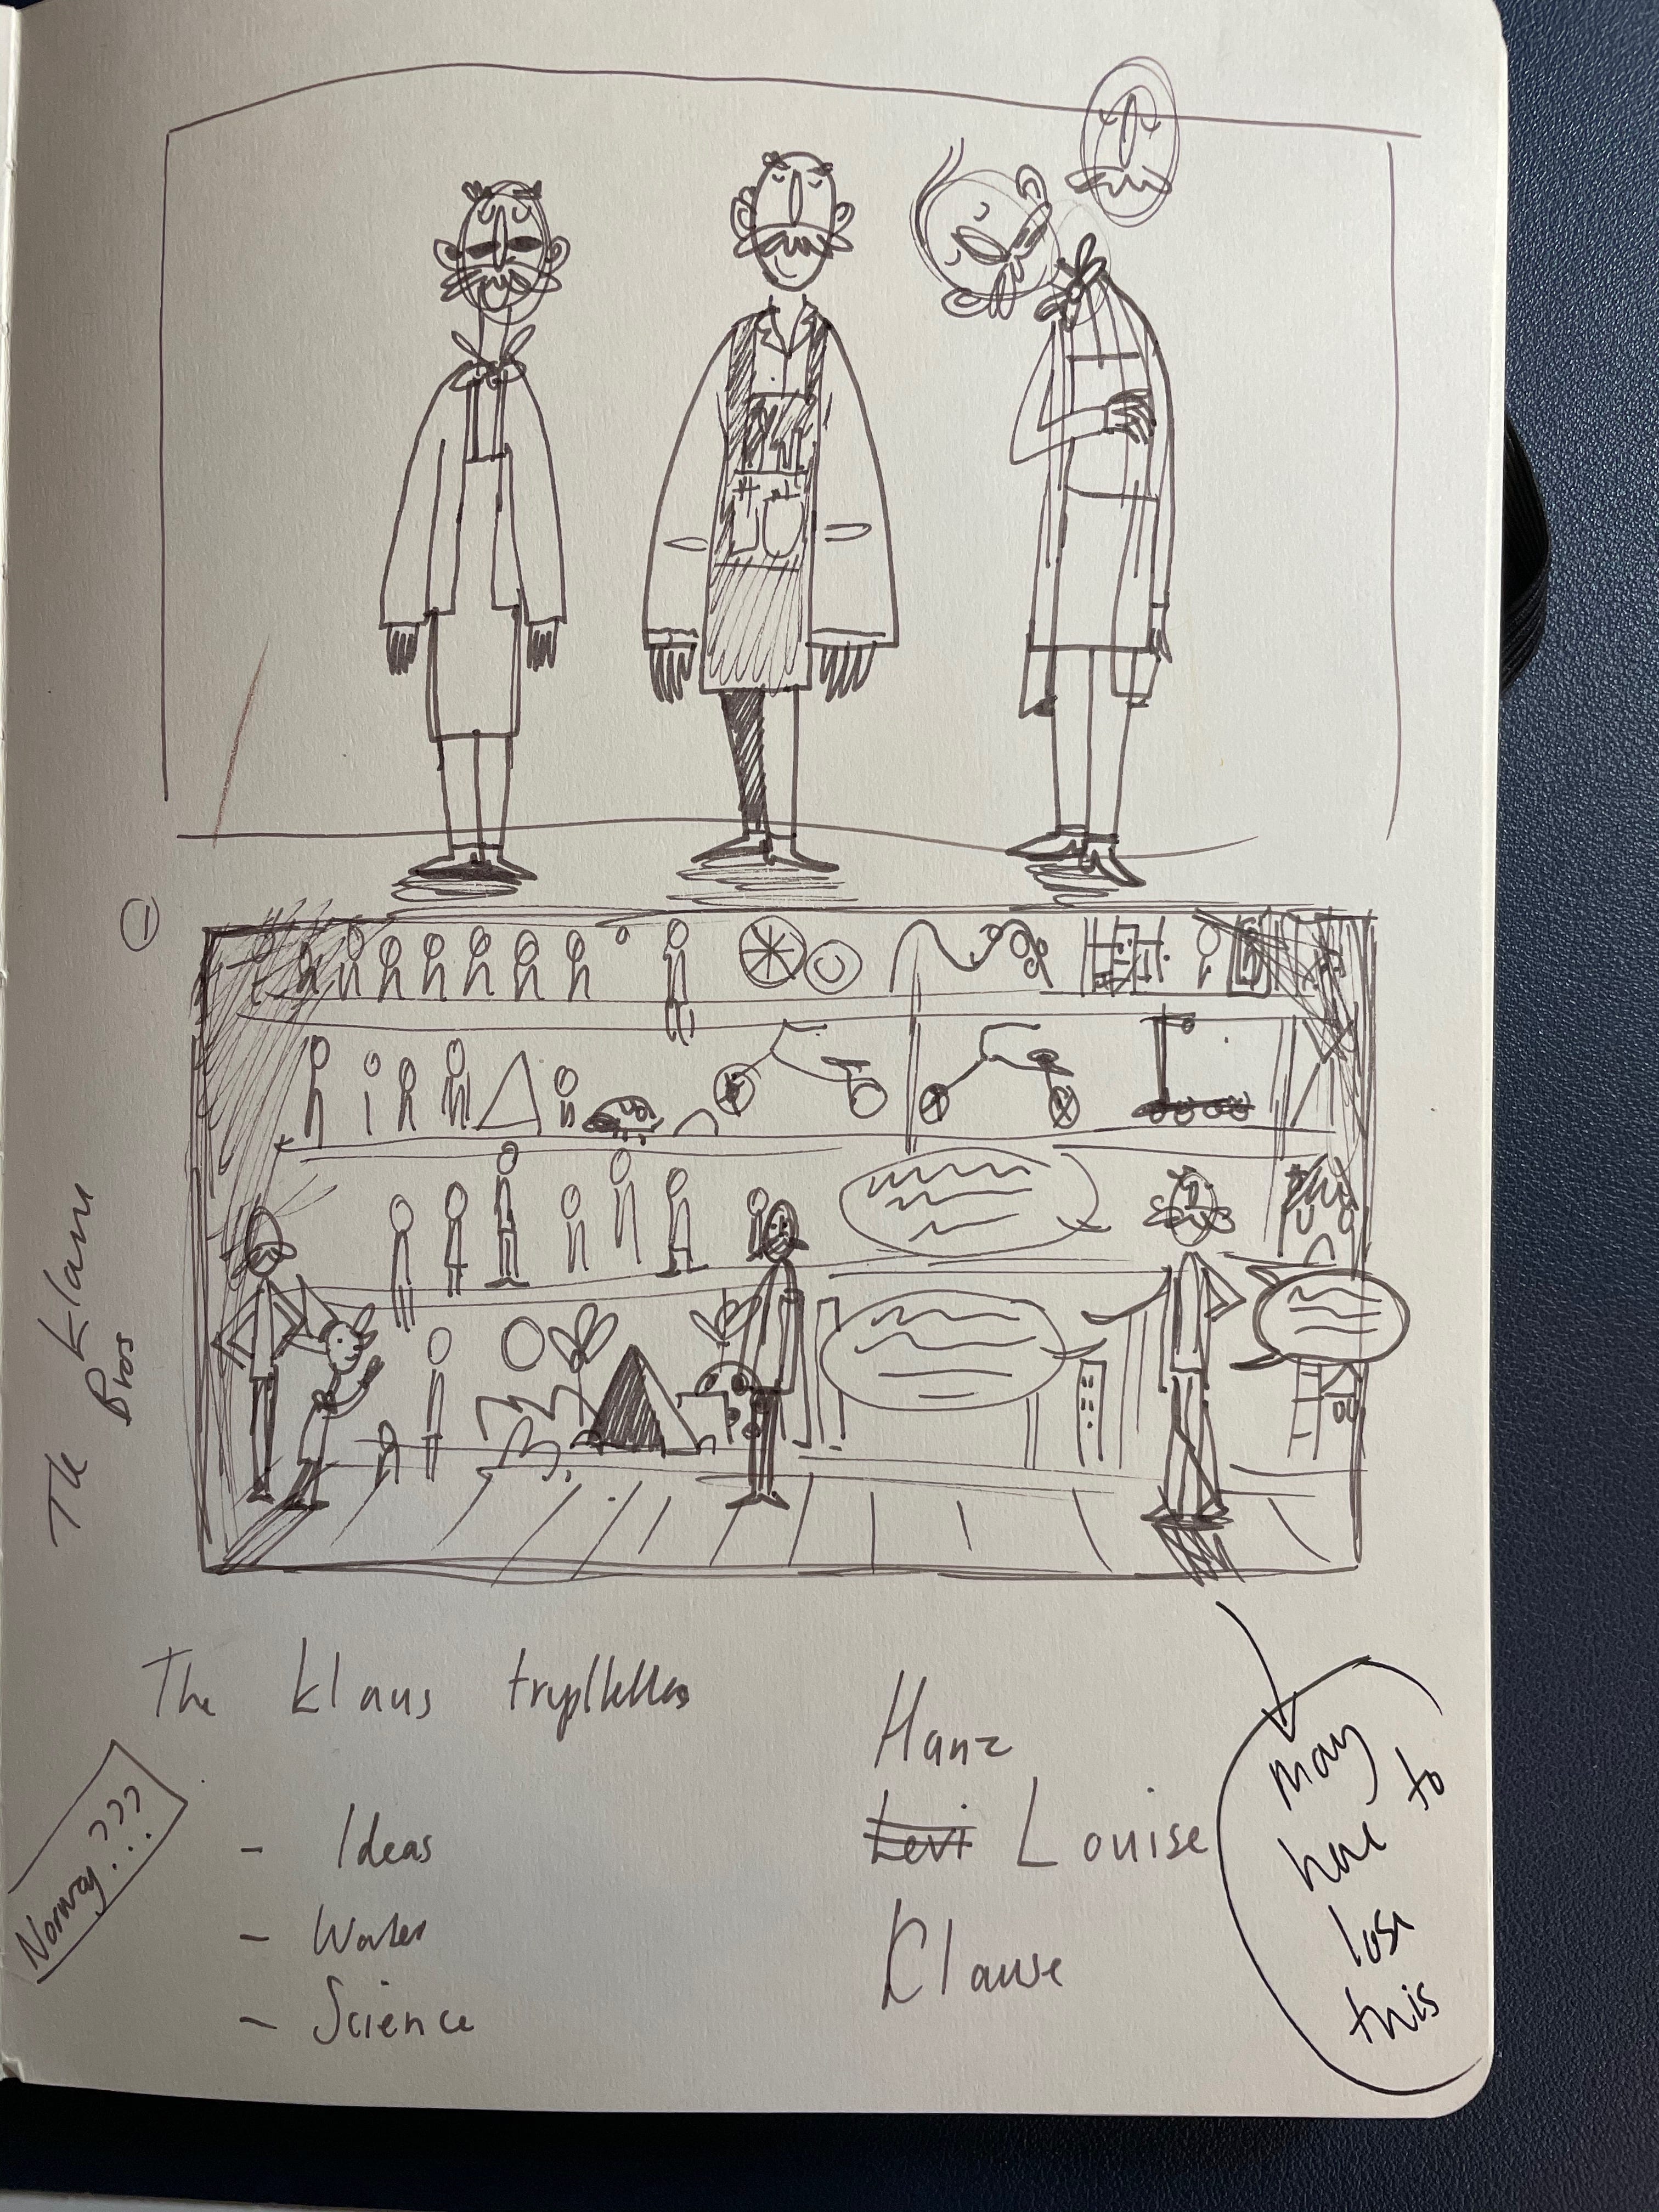 ①
The Klaus
Bros
The Klaus
Norway???
- Ideas
- Water
- Science
Hanz
Levi Louise
Klause
may
have to
lose
this